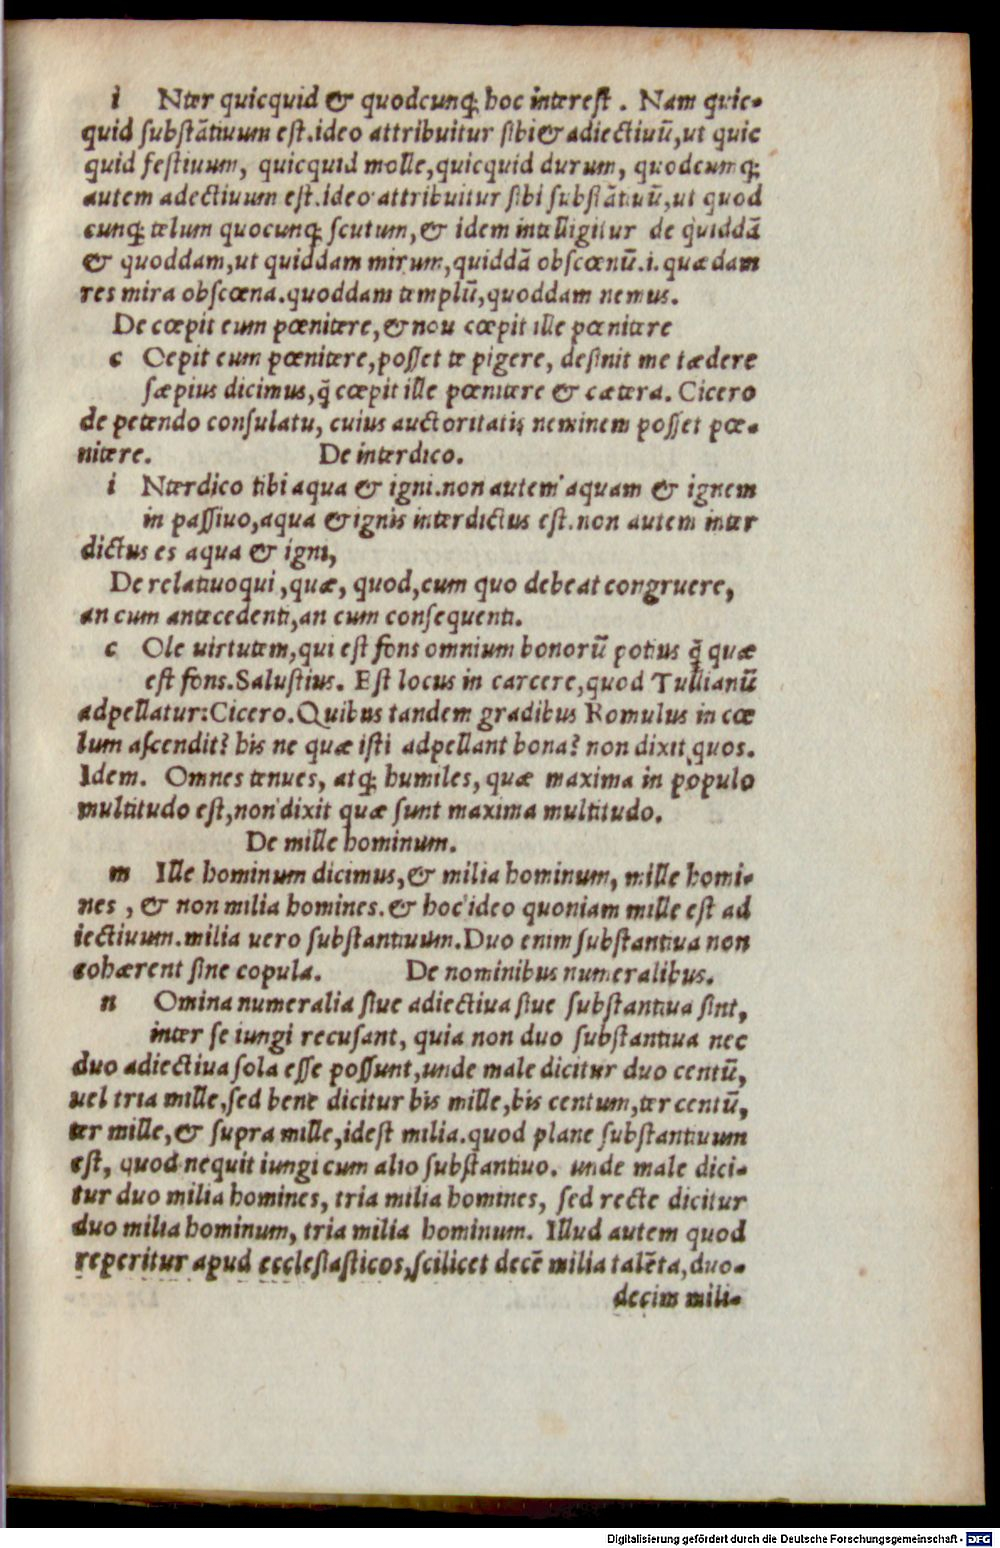 i Nter quicquid & quodcunq; hoc interest. Nam quic-
quid substātiuum est.ideo attribuitur sibi & adiectiuū,ut quic
quid festiuum, quicquid molle,quicquid durum, quodcumq;
autem adectiuum est.ideo attribuitur sibi substātiuū,ut quod
cunq; telum quocunq; scutum,& idem intelligitur de quiddā
& quoddam,ut quiddam mirum,quiddā obscœnū.i.quædam
res mira obscœna.quoddam templū,quoddam nemus.
De cœpit eum pœnitere,& nou cœpit ille pœnitere
c Oepit eum pœnitere,posset te pigere, desinit me tædere
sæpius dicimus,q̃ cœpit ille pœnitere & cætera. Cicero
de petendo consulatu, cuius auctoritatis neminem posset pœ-
nitere. De interdico.
i Nterdico tibi aqua & igni.non autem aquam & ignem
in passiuo,aqua & ignis interdictus est.non autem inter
dictus es aqua & igni,
De relatiuo qui,quæ, quod,cum quo debeat congruere,
an cum antecedenti,an cum consequenti.
c Ole uirtutem,qui est fons omnium bonorū potius q̃ quæ
est fons.Salustius. Est locus in carcere,quod Tullianū
adpellatur:Cicero.Quibus tandem gradibus Romulus in cœ
lum ascendit? bis ne quæ isti adpellant bona? non dixit quos.
Idem. Omnes tenues, atq; humiles, quæ maxima in populo
multitudo est,non dixit quæ sunt maxima multitudo.
De mille hominum.
m Ille hominum dicimus,& milia hominum, mille homi-
nes , & non milia homines.& hoc ideo quoniam mille est ad
iectiuum.milia uero substantiuum.Duo enim substantiua non
cohærent sine copula. De nominibus numeralibus.
n Omina numeralia siue adiectiua siue substantiua sint,
inter se iungi recusant, quia non duo substantiua nec
duo adiectiua sola esse possunt,unde male dicitur duo centū,
uel tria mille,sed bene dicitur bis mille,bis centum,ter centū,
ter mille,& supra mille,idest milia.quod plane substantiuum
est, quod nequit iungi cum alio substantiuo. unde male dici-
tur duo milia homines, tria milia homines, sed recte dicitur
duo milia hominum, tria milia hominum. Illud autem quod
reperitur apud ecclesiasticos,scilicet decē milia talēta,duo-
decim mili-
Digitalisierung gefördert durch die Deutsche Forschungsgemeinschaft - DFG